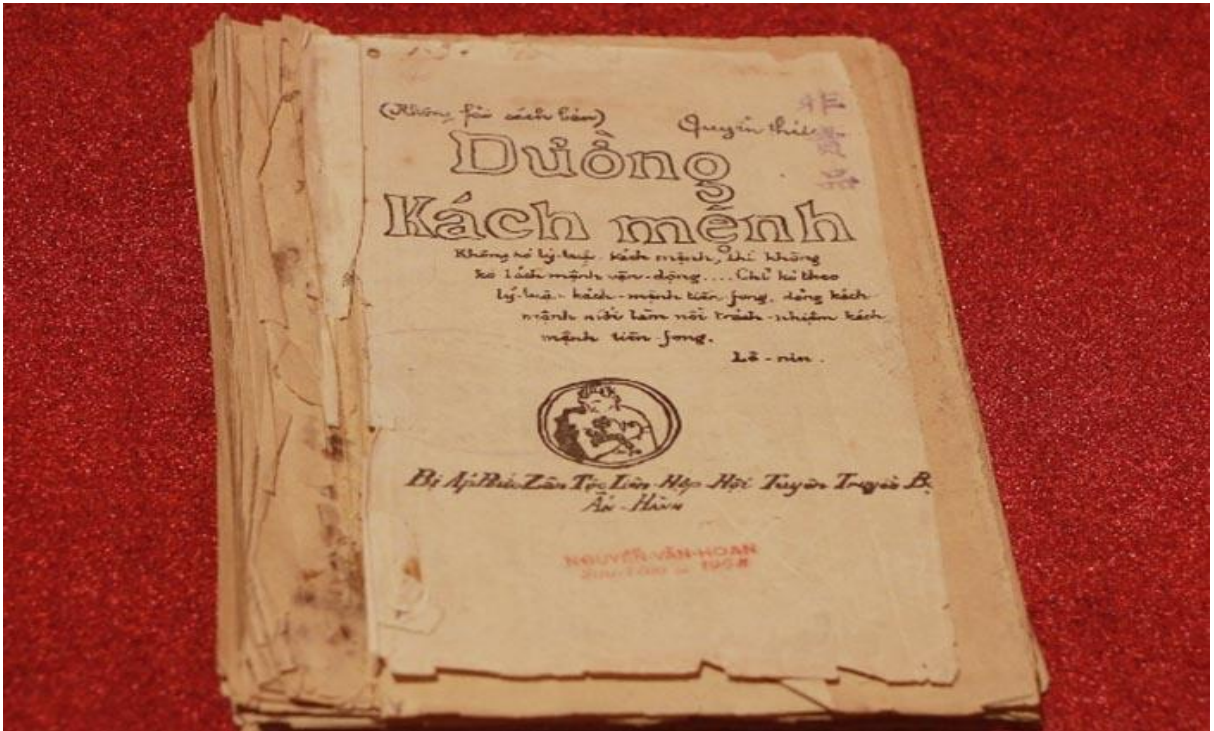 (Không fải sách bán)
Quyển thứ
非賣品
Đường
Kách mệnh
Không có lý-luận kách mệnh, thì không
kó kách mệnh vận-động.... Chỉ kó theo
lý-luận kách-mệnh tiền fong, đảng kách
mệnh mới làm nổi trách-nhiệm kách
mệnh tiền-fong.
Lê-nin.
Bị Áp Bức Zân Tộc Liên-Hợp-Hội Tuyên Truyền Bộ
Ấn-Hành
NGUYỄN-VĂN-HOAN